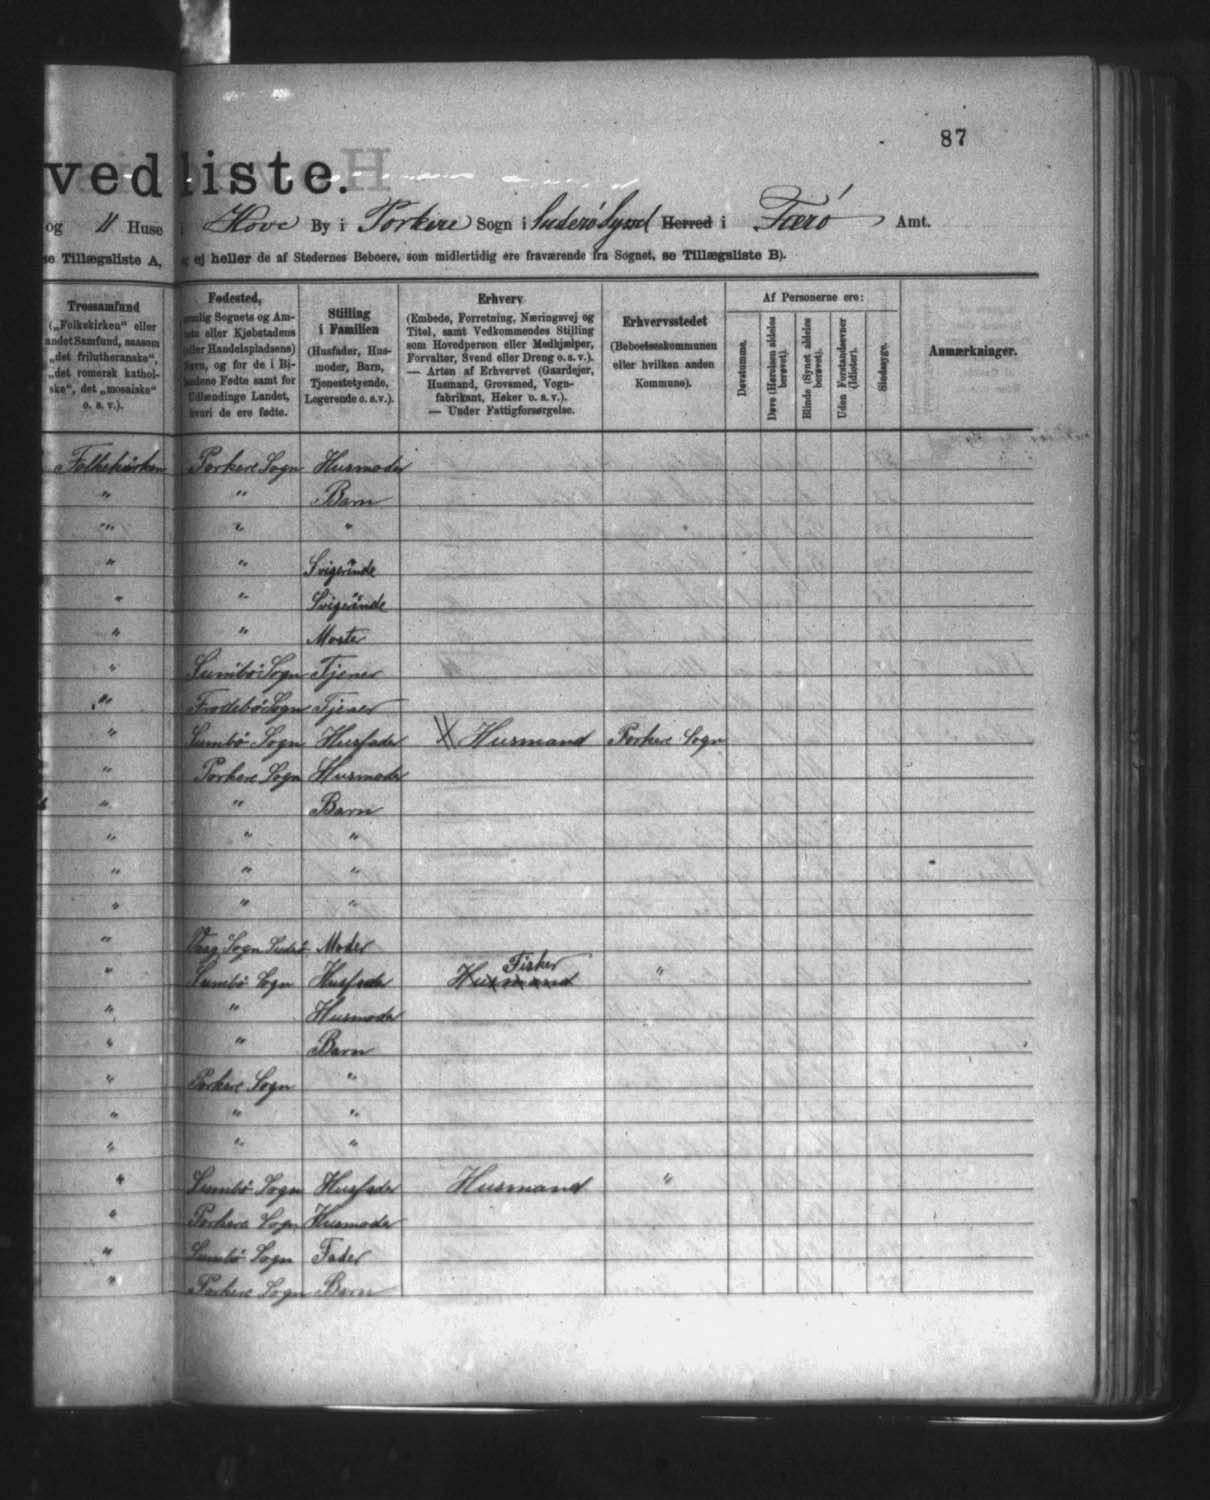 87
vedliste.
og 11 Huse i Hove By i Porkere Sogn i Suderø Syssel Herred i Færø Amt.
se Tillægsliste A, og ej heller de af Stedernes Beboere, som midlertidig ere fraværende fra Sognet, se Tillægsliste B).
Trossamfund
(„Folkekirken“ eller
andet Samfund, saasom
„det frilutheranske“,
„det romersk kathol-
ske“, det „mosaiske“
o. s. v.).
Fødested,
nemlig Sognets og Am-
tets eller Kjøbstadens
(eller Handelspladsens)
Navn, og for de i Bi-
landene Fødte samt for
Udlændinge Landet,
hvori de ere fødte.
Stilling
i Familien
(Husfader, Hus-
moder, Barn,
Tjenestetyende,
Logerende o. s. v.).
Erhverv
(Embede, Forretning, Næringsvej og
Titel, samt Vedkommendes Stilling
som Hovedperson eller Medhjælper,
Forvalter, Svend eller Dreng o. s. v.).
— Arten af Erhvervet (Gaardejer,
Husmand, Grovsmed, Vogn-
fabrikant, Høker o. s. v.).
— Under Fattigforsørgelse.
Erhvervsstedet
(Beboelseskommunen
eller hvilken anden
Kommune).
Af Personerne ere:
Døvstumme.
Døve (Hørelsen aldeles
berøvet).
Blinde (Synet aldeles
berøvet).
Uden Forstandsevner
(Idioter).
Sindssyge.
Anmærkninger.
Folkekirken Porkere Sogn Husmoder
" " Barn
" " "
" " Svigerinde
" " Svigerinde
" " Moster
" Sumbø Sogn Tjener
" Frodebø Sogn Tjener
" Sumbø Sogn Husfader Husmand Porkere Sogn
" Porkere Sogn Husmoder
" " Barn
" " "
" " "
" " "
" Vaag Sogn Suderø Moder
" Sumbø Sogn Husfader Husmand Fisker "
" " Husmoder
" " Barn
" Porkere Sogn "
" " "
" " "
" Sumbø Sogn Husfader Husmand "
" Porkere Sogn Husmoder
" Sumbø Sogn Fader
" Porkere Sogn Barn